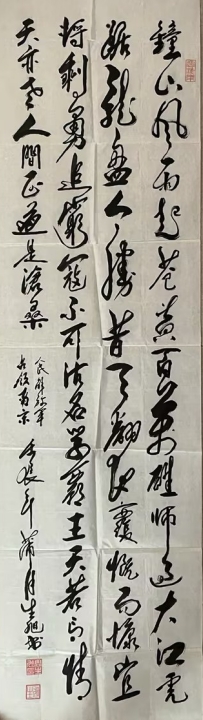 鐘山風雨起蒼黃百萬雄師過大江虎
踞龍盤今勝昔天翻地覆慨而慷宜
將剩勇追窮寇不可沽名學霸王天若有情
天亦老人間正道是滄桑
人民解放軍
占領南京